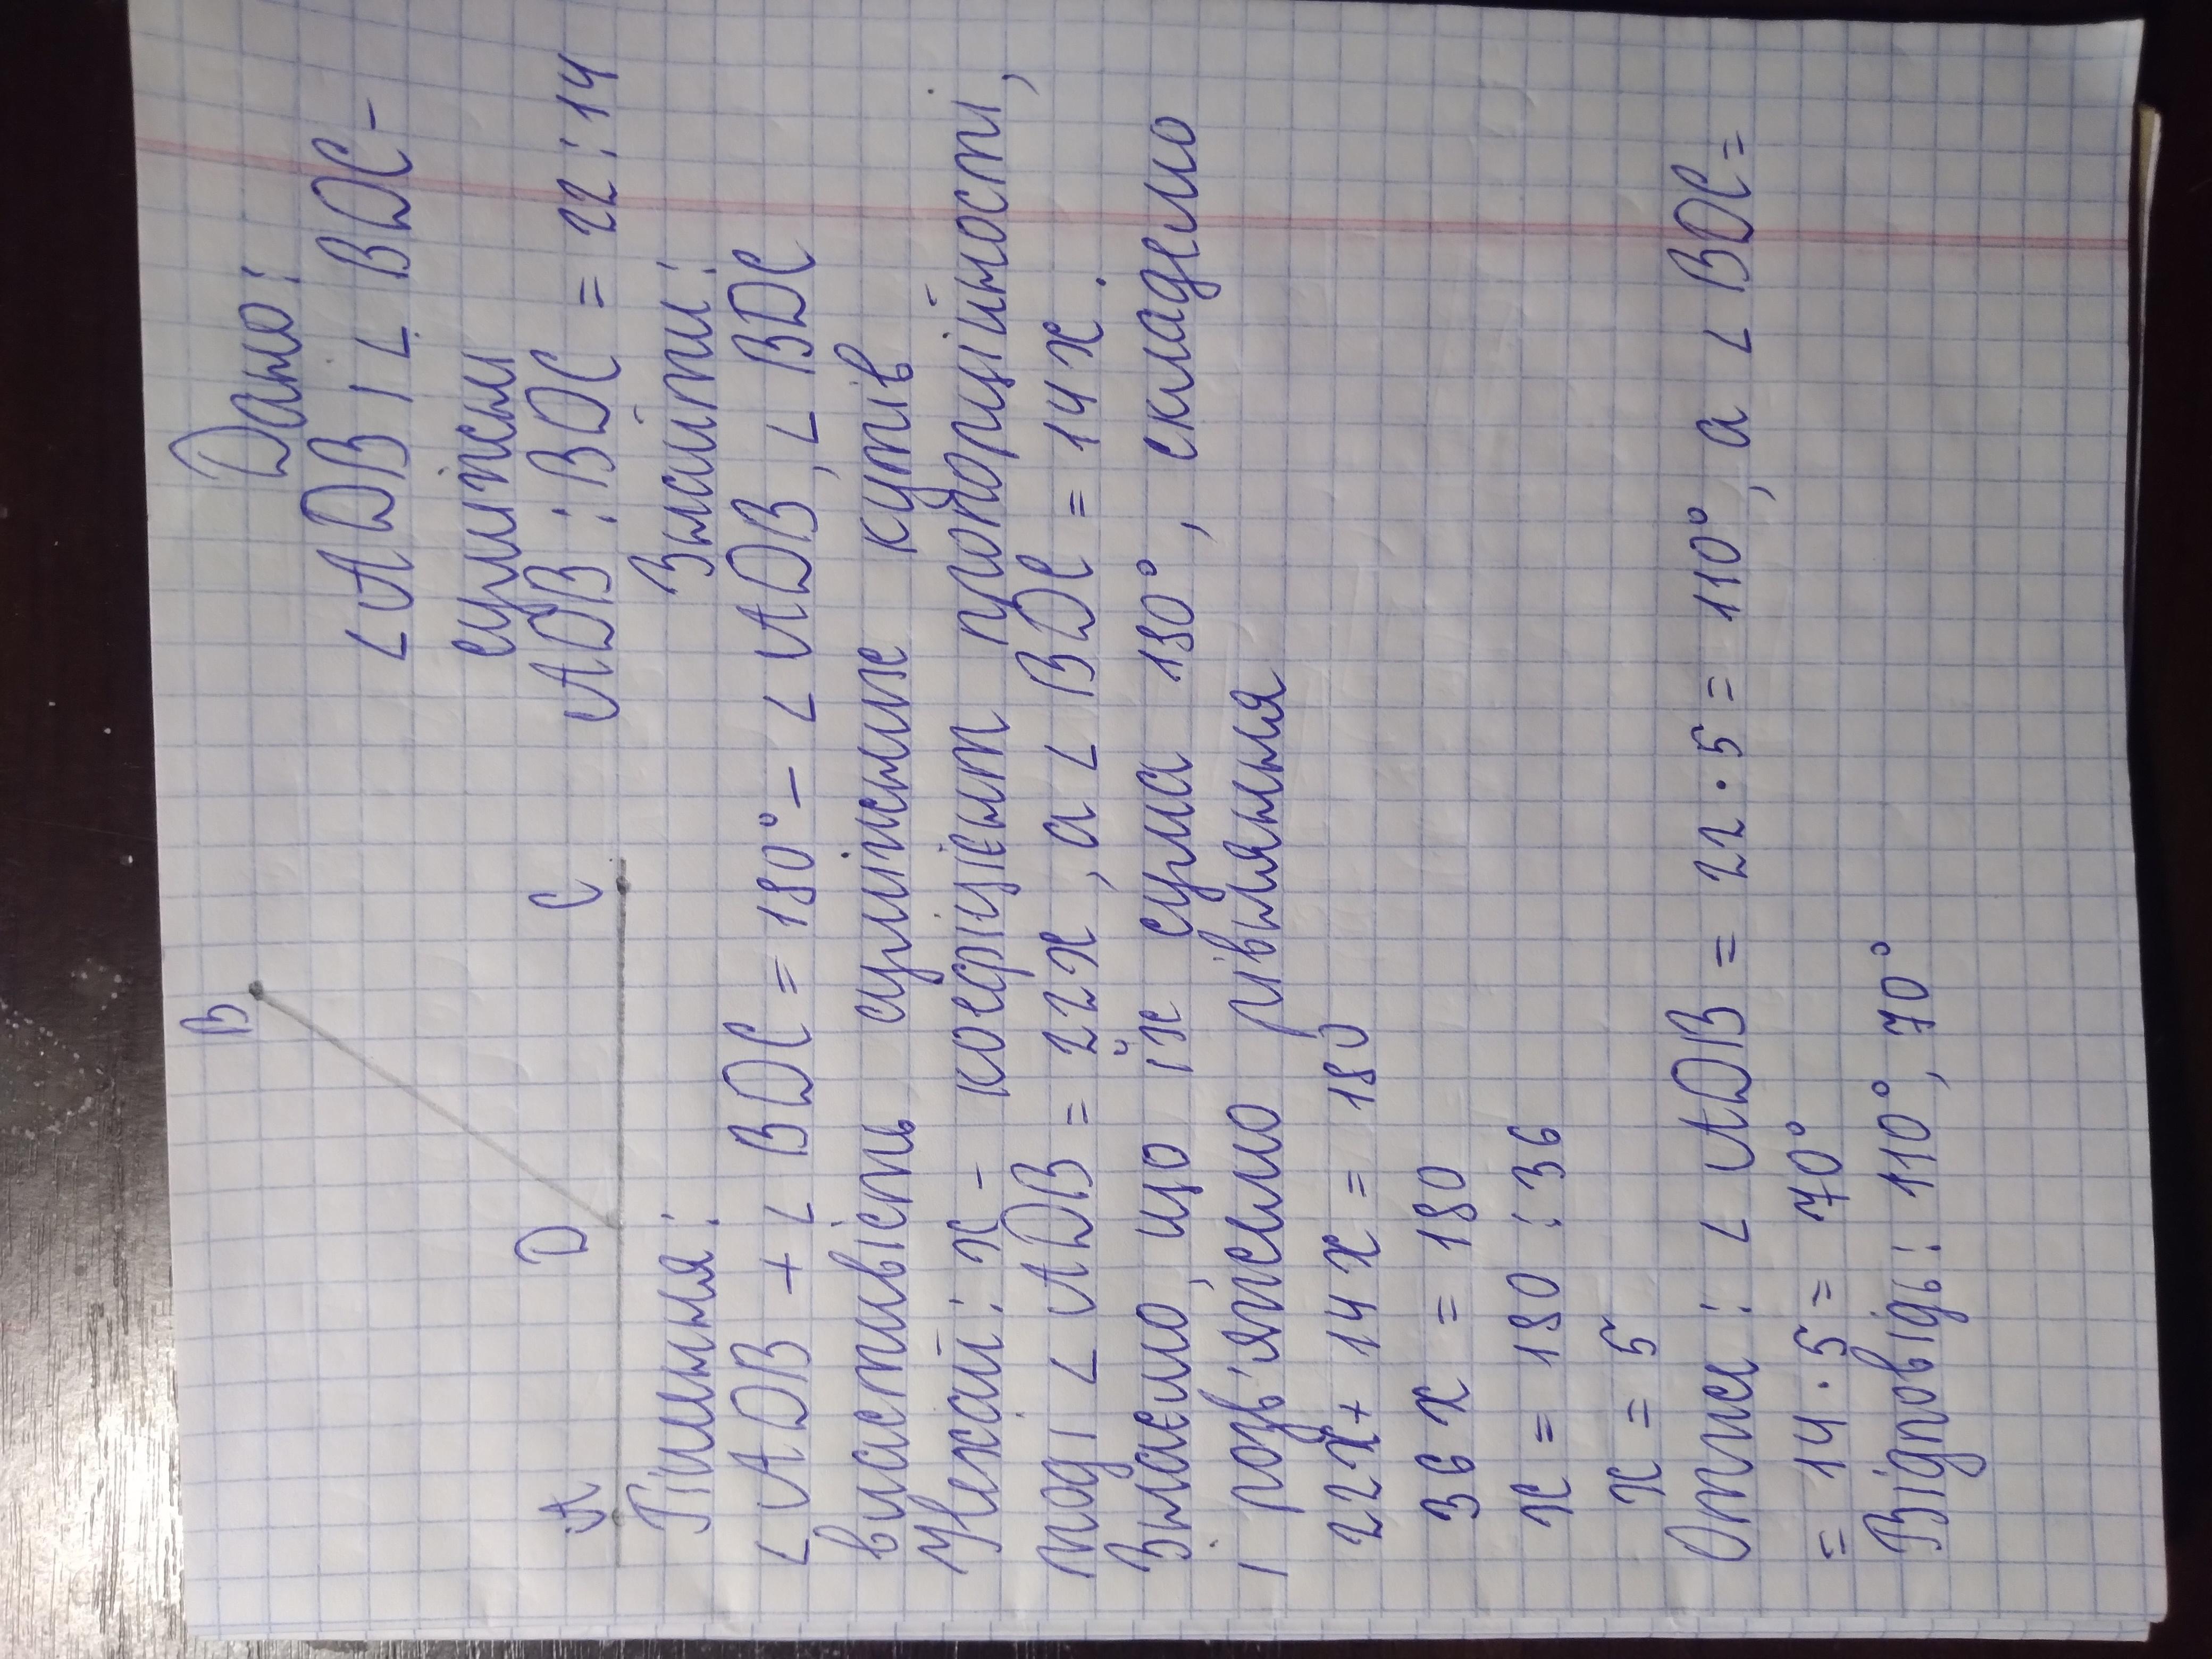 Дано:
∠ADB і ∠BDC -
суміжні
ADB : BDC = 22 : 14
Знайти:
∠ADB, ∠BDC
B
A D C
Рішння:
∠ADB + ∠BDC = 180° -
властивість суміжних кутів
Нехай: x - коефіцієнт пропорційності,
тоді ∠ADB = 22x, а ∠BDC = 14x.
Знаємо, що їх сума 180°, складемо
і розв'яжемо рівняння
22x + 14x = 180
36x = 180
x = 180 : 36
x = 5
Отже: ∠ADB = 22 · 5 = 110°, а ∠BDC =
= 14 · 5 = 70°
Відповідь: 110°, 70°